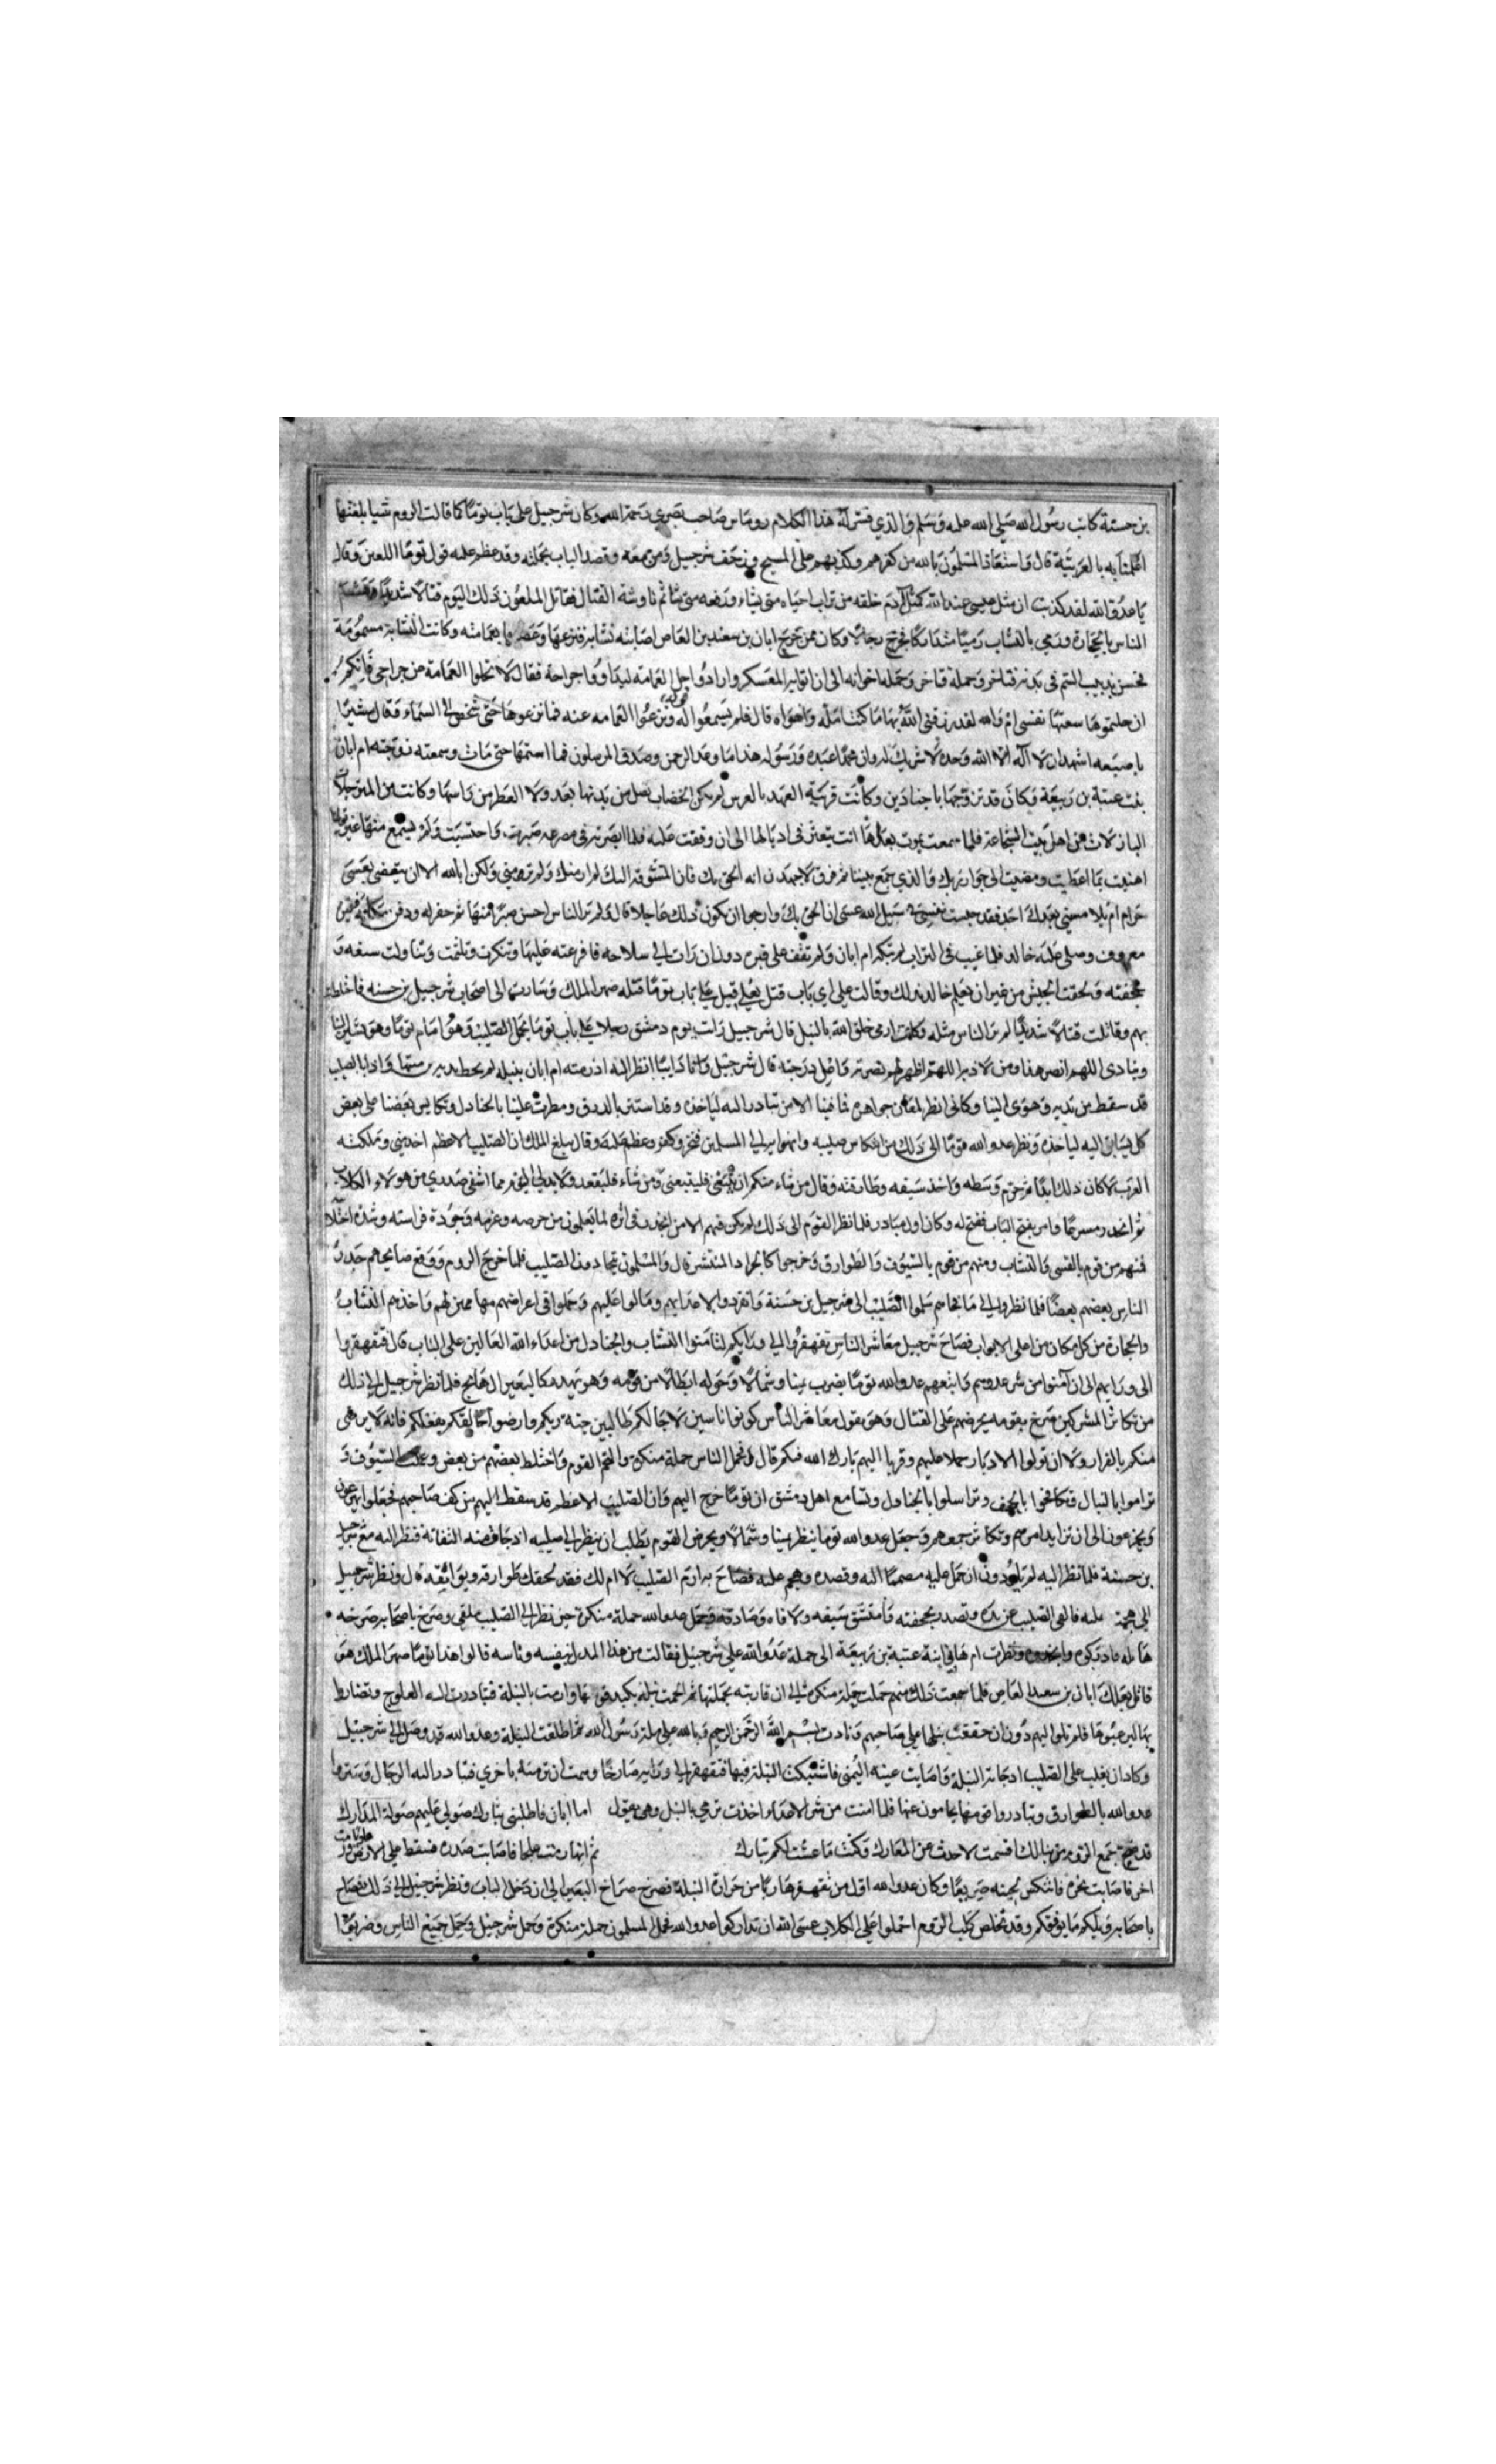 بن حسنة كاتب رسول الله صلى الله عليه وسلم والذي فسر له هذا الكلام روماس صاحب بصرى رحمه الله وكان شرجيل على باب توما كما قالت الروم شيا بلغتها
اعلمنا به بالعربية قال فاستعاذ المسلمون بالله من كفرهم وكذبهم على المسيح وزحف شرجيل ومن معه وقصد الباب بحملته وقد عظم عليه قول توما اللعين وقال
يا عدو الله لقد كذبت ان مثل عيسى عند الله كمثل آدم خلقه من تراب احياه متى يشاء ورفعه متى شاء ثم ناوشه القتال فقاتل الملعون ذلك اليوم قتالا شديدا
الناس بالحجارة ورمى بالنشاب رميا متداركا فجرح رجالا وكان ممن جرح ابان بن سعيد بن العاص اصابته نشابه فنزعها وعصها بعمامته وكانت النشابة مسمومة
فحس بدبيب السم في بدنه فتاخر وحمله اخوانه الى ان اتوا به المعسكر وارادوا حل العمامة ليداووا جراحه فقال لا تحلوا العمامة من جراحي فانكم
ان حلتموها سعتها نفسي ام والله لقد رزقني الله بها ما كنت امله واهواه قال فلم يسمعوا له ونزعوا العمامه عنه فما نزعوها حتى شخص الى السماء وقال مشيرا
باصبعه اشهد ان لا اله الا الله وحده لا شريك له وان محمدا عبده ورسوله هذا ما وعد الرحمن وصدق المرسلون فما استتمها حتى مات وسمعته زوجته ام ابان
بنت عتبة بن ربيعة وكان قد تزوجها باجنادين وكانت قريبة العهد بالعرس لم يكن الخضاب نصل من يدنها بعد ولا العطر من راسها وكانت من المترجلات
البازلات من اهل بيت الشجاعة فلما سمعت بموت بعلها اتت تتعثر في اذيالها الى ان وقفت عليه فلما ابصرته في مصرعه صبرت واحتسبت ولم يسمع منها غير قولها
اهنيت بما اعطيت ومضيت الى جوار ربك والذي جمع بيننا ثم فرق لاجهدن انه الحق بك فان المتشوقه اليك لم ار منك ولم تر مني ولكن ابا الله الا ان يتغضى
حرام ام بلا مسنى بعدك احد فقد حبست نفسي في سبيل الله عسى ان الحق بك وارجوا ان يكون ذلك عاجلا قال ولم تر الناس احسن صبرا منها ثم حفر له ودفن مكانه فقبره
معروف وصلى عليه خالد فلما غيب في التراب لم تبكه ام ابان ولم تقف على قبره دون ان رات الى سلاحه فافرغته عليها وتنكرت وتلثمت وتناولت سيفه و
حجفته ولحقت الجيش من غير ان يعلم خالد بذلك وقالت على اي باب قتل بعلي قيل على باب توما قتله صهر الملك وسارت الى اصحاب شرجيل بن حسنه فاختلطت
بهم وقاتلت قتالا شديدا لم تر الناس مثله وكانت ارمى خلق الله بالنبل قال شرجيل رات يوم دمشق رجلا على باب توما يحمل الصليب وهو امام توما وهو يشير الينا
وينادي اللهم انصر هذا ومن لاذ به اللهم اظهر لهم نصرته واعلى درجته قال شرجيل وانا دايبا انظر اليه اذ رمته ام ابان بنبله لم يخط بديه من سهمها واذا بالصليب
قد سقط من يديه وهوى الينا وكاني انظر لمعان جواهره فما فينا الا من تبادر اليه لياخذه وقد استتر بالدرق ومطرت علينا بالجنادل وتكايس بعضنا على بعض
كل يسابق اليه لياخذه ونظر عدو الله توما الى ذلك من انتكاس صليبه وانهوا به الى المسلمين فنخر وكفر وعظم عليه وقال يبلغ الملك ان الصليب الاعظم اخذ مني وتملكته
العرب لا كان ذلك ابدا ثم حزم وسطه واخذ سيفه وطارقته وقال من شاء منكم ان يتبعني فليتبعني ومن شاء فليقعد ولا بد لي اليوم مما اشفى صدري من هولاء الكلاب
ثم انحدر مسرعا وامر بفتح الباب ففتح له وكان اول مبادر فلما نظر القوم الى ذلك لم يكن فيهم الا من انحدر في اثره لما يعلمون من حرصه وعزمه وجودة فراسته وشدة
فمنهم من قوم بالقسي والنشاب ومنهم من قوم بالسيوف والطوارق وخرجوا كالجراد المنتشر قال والمسلمون تجاذبون للصليب فلما خرج الروم ووقع صايحهم حذر
الناس بعضهم بعضا فلما نظروا الى ما نجاهم سلموا الصليب الى شرجيل بن حسنة وانفردوا لاعدايهم ومالوا عليهم وحملوا في اعراضهم واخذهم النشاب
والحجارة من كل مكان من اعلى الابواب فصاح شرجيل معاشر الناس تقهقروا الى ورايكم لتامنوا النشاب والجنادل من اعداء الله العالين على الباب قال فتقهقروا
الى ورايهم الى ان آمنوا من شر عدوهم واتبعهم عدو الله توما يضرب يمينا وشمالا وحوله ابطالا من قومه وهو يهدر كالبعير الهايج فلما نظر شرجيل الى ذلك
من تكاثر المشركين صرخ بقومه يحرضهم على القتال وهو يقول معاشر الناس كونوا ناسين لاجالكم طالبين جنة ربكم وارضوا خالقكم بفعلكم فانه لا يرضى
منكم بالفرار ولا ان تولوا الادبار حملا عليهم وقربا اليهم بارك الله فيكم قال فحمل الناس حملة منكرة والتحم القوم واختلط بعضهم من بعض وعملت السيوف و
تراموا بالنبال وتكافحوا بالحجف وتراسلوا بالجنادل وتسامع اهل دمشق ان توما خرج اليهم وان الصليب الاعظم قد سقط اليهم من كف صاحبهم فجعلوا يهرعون
ويخرعون الى ان تزايد امرهم وتكاثر جمعهم وجعل عدو الله توما ينظر يمينا وشمالا ويحرض القوم يطلب ان ينظر الى صليبه اذ حانت منه التفاتة فنظر اليه مع شرجيل
بن حسنة فلما نظر اليه لم يكن دون ان حمل عليه مصمما اليه وقصده وهجم عليه فصاح به ارم الصليب لا ام لك فقد لحقك طوارقه وبوايقه قال ونظر شرجيل
الى هجمة عليه فالقى الصليب عن يده وتصدر بحجفته وامتشق سيفه ولاقاه وصادفه وحمل عدو الله حملة منكرة حين نظر الى الصليب ملقى وصرخ باصحابه صرخه
هايله وادركوه ونظرت ام هاني ابنة عتبة بن ربيعة الى حملة عدو الله على شرجيل فقالت من هذا المدل بنفسه وناسه قالوا هذا توما صهر الملك هو
قاتل بعلك ابان بن سعيد العاص فلما سمعت ذلك منهم حملت حملة منكرة الى ان قاربته بحملتها ثم الحمت نبلة بكبد قوسها وارمت بالنبلة فتبادرت اليه العلوج وتضايطوا
بها ليرعبوها فلم تلوا اليهم دون ان حققت نبلها على صاحبهم ونادت بسم الله الرحمن الرحيم وبالله على ملة رسول الله ثم اطلقت النبلة وعدو الله قد وصل الى شرجيل
وكاد ان يغلب على الصليب اذ جاته النبلة فاصابت عينه اليمنى فاشتبكت النبلة فيها فتقهقر الى ورايه صارخا وهمت ان ترميه باخرى فتبادر اليه الرجال وسترها
عدو الله بالطوارق وتبادروا قومها يحامون عنها فلما امنت من شر الاعداء اخذت ترمي بالنبل وهي تقول اما ابان فاطلبني بثارك صولي عليهم صولة المدارك
قد ضج جمع الروم من نبالك اقسمت لا حدت عن المعارك وكنت ما عشت لكم تبارك ثم انها رمت علجا فاصابت صدره فسقط على الارض ورمت
اخر فاصابت نحره فانتكس لجبينه صريعا وكان عدو الله اول من تقهقر هاربا من حرارة النبلة فصرخ صراخ البعير الى ان دخل الباب ونظر شرجيل الى ذلك فصاح
باصحابه ويلكم ما يوفقكم وقد تخلص كلب الروم احملوا على الكلاب عسى الله ان تداركوا عدو الله فحمل المسلمون حملة منكرة وحمل شرجيل وحمل جميع الناس وضربوا